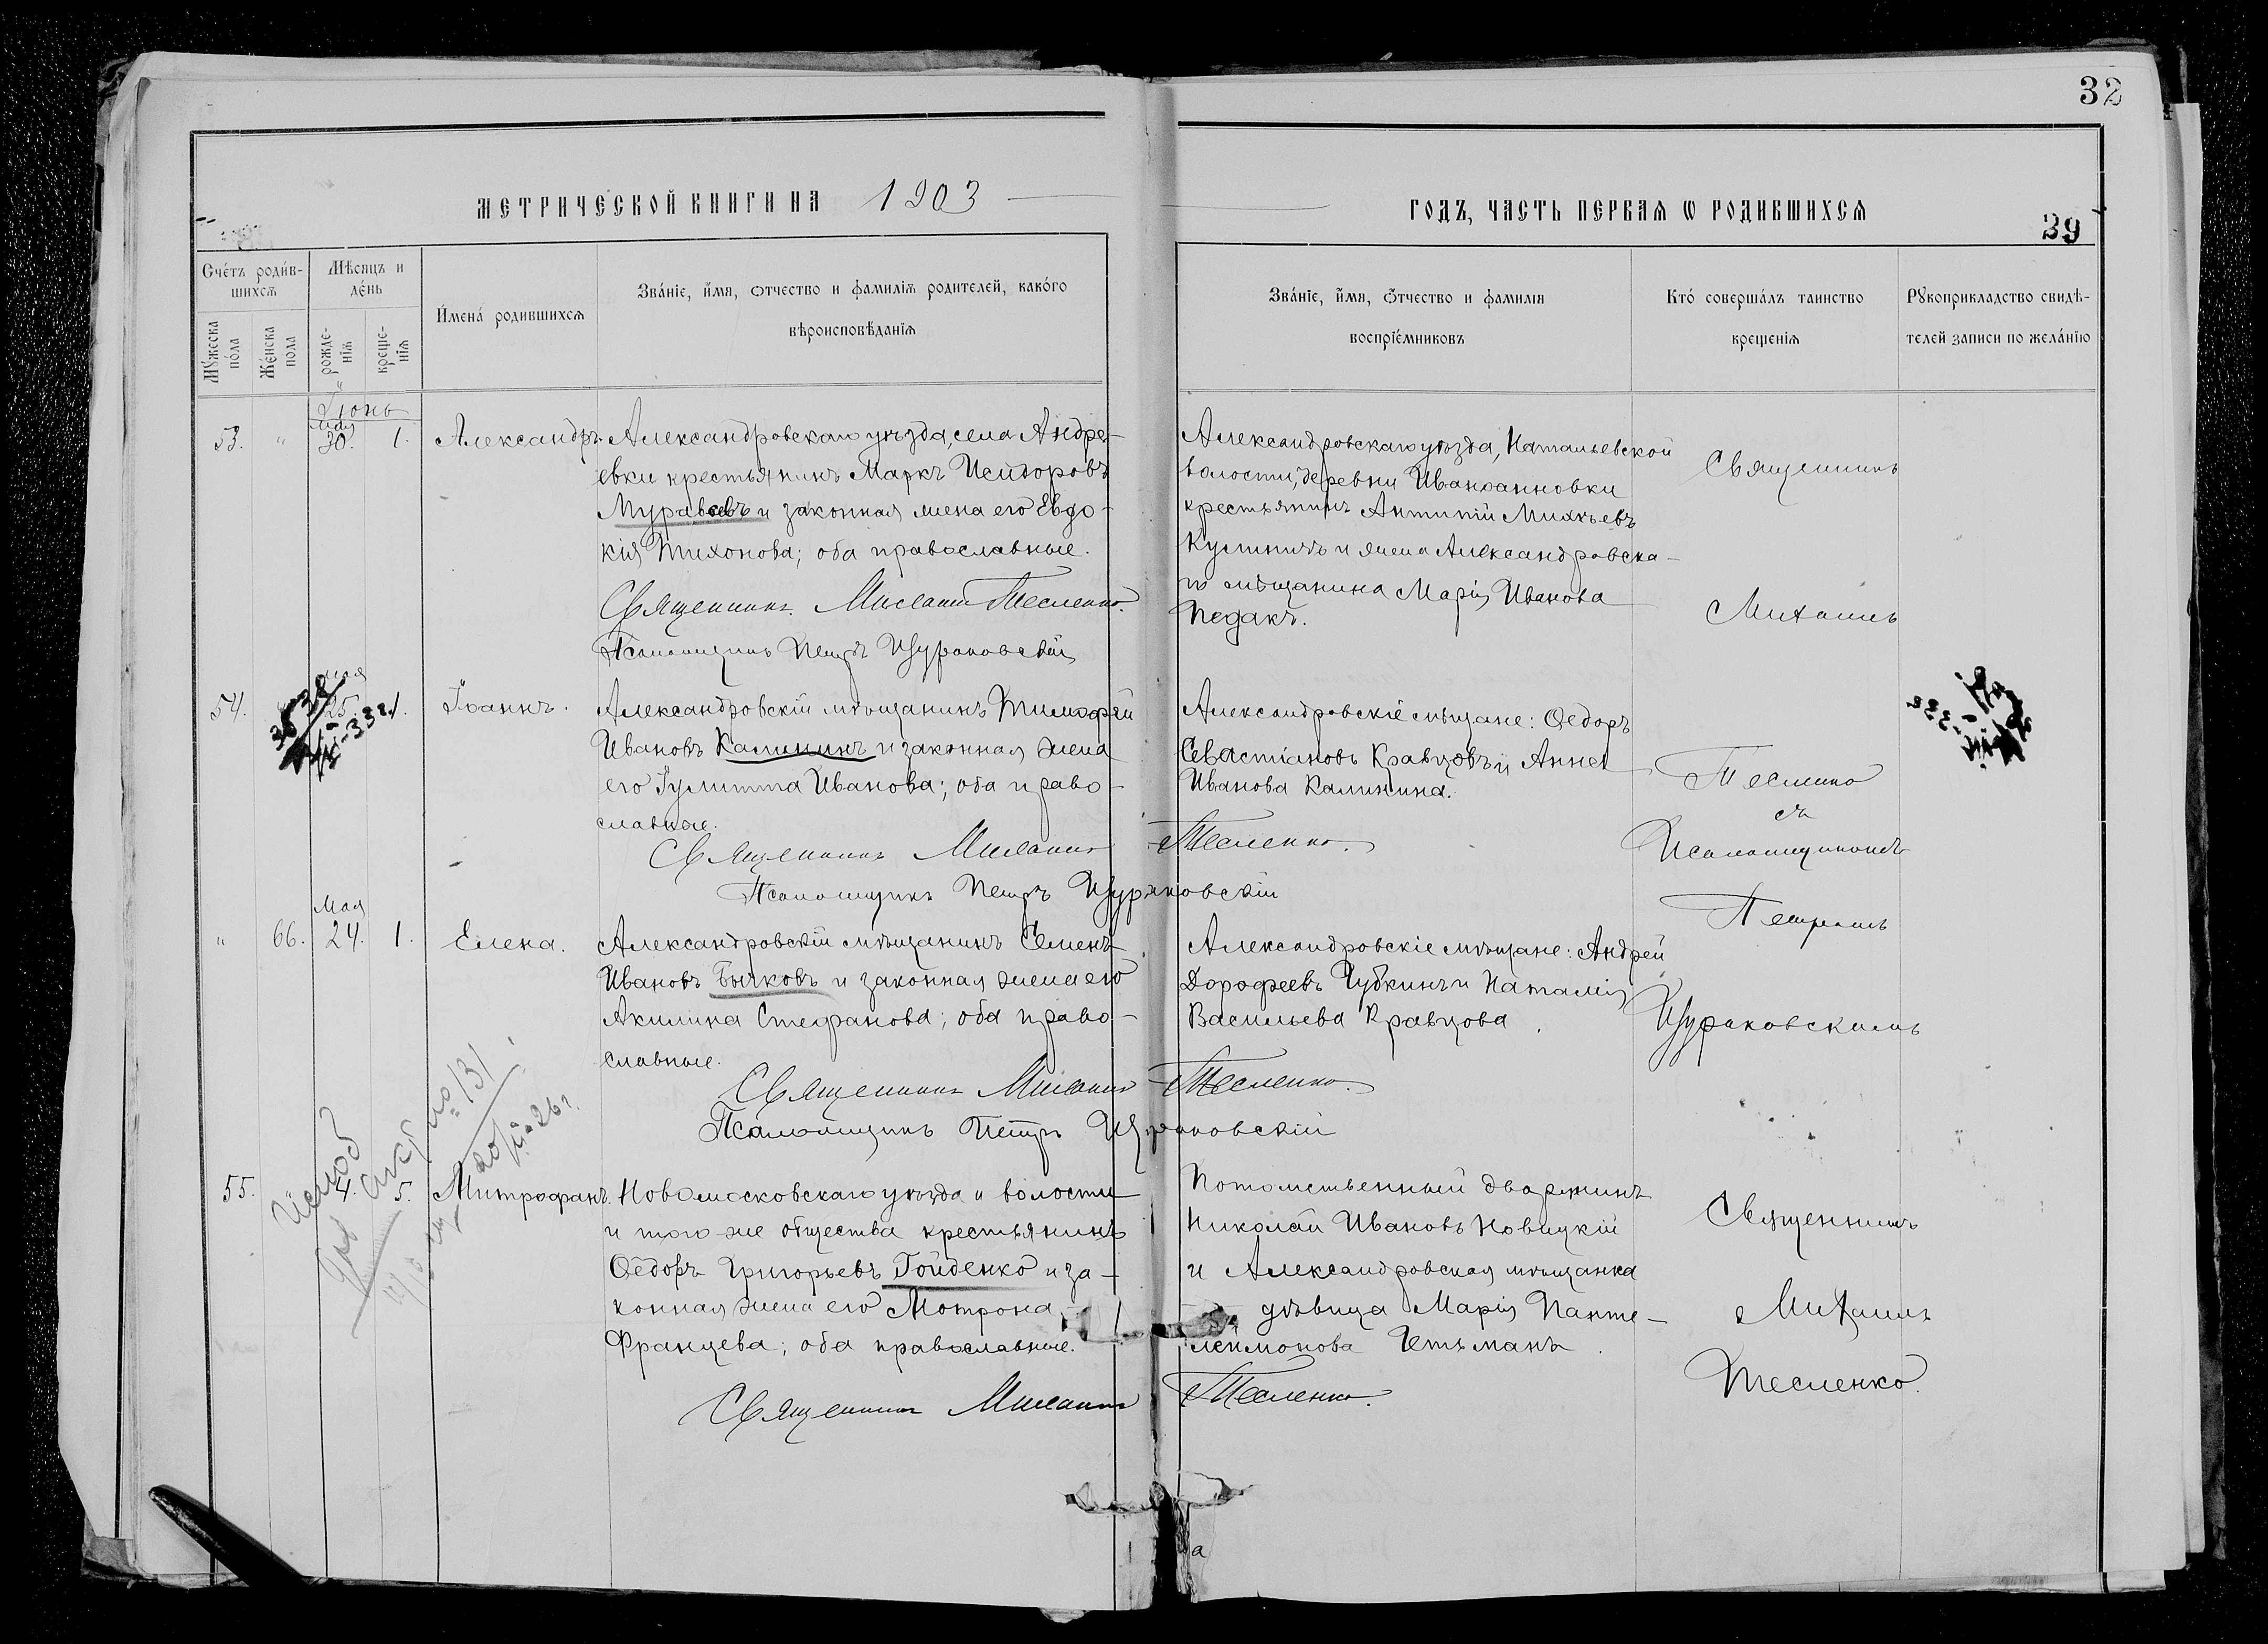 32
МЕТРИЧЕСКОЙ КНИГИ НА 1903
ГОДЪ, ЧАСТЬ ПЕРВАЯ Ѡ РОДИВШИХСЯ
39
Счетъ родив-
шихся
Мѣсяцъ и
день
Имена родившихся
Званіе, имя, отчество и фамилія родителей, какого
вѣроисповѣданія
Мужеска
пола
Женска
пола
рожде-
нія
креще-
нія
Званіе, имя, отчество и фамилія
воспріемниковъ
Кто совершалъ таинство
крещенія
Рукоприкладство свидѣ-
телей записи по желанію
Іюнь
53. " мая 30. 1. Александръ.
Александровскаго уѣзда, села Андре-
евки крестьянинъ Маркъ Исидоровъ
Муравьевъ и законная жена его Евдо-
кія Тихонова; оба православные.
Священникъ Михаилъ Тесленко.
Псаломщикъ Петръ Щураковскій
Александровскаго уѣзда, Натальевской
волости, деревни Иваноанновки
крестьянинъ Антипій Михѣевъ
и жена Александровска-
го мѣщанина Марія Иванова
Педакъ.
Священникъ
Михаилъ
54. мая 25. 1. Іоаннъ.
Александровскій мѣщанинъ Тимофей
Ивановъ Калининъ и законная жена
его Іулитта Иванова; оба право-
славные.
Священникъ Михаилъ Тесленко.
Псаломщикъ Петръ Щураковскій
Александровскіе мѣщане: Ѳедоръ
Севастіановъ Кравцовъ и Анна
Иванова Калинина.
Тесленко
съ
Псаломщикомъ
Петромъ
" 66. Мая 24. 1. Елена.
Александровскій мѣщанинъ Семенъ
Ивановъ Бычковъ и законная жена его
Акилина Стефанова; оба право-
славные.
Священникъ Михаилъ Тесленко.
Псаломщикъ Петръ Щураковскій
Александровскіе мѣщане: Андрей
Дорофеевъ Губкинъ и Наталія
Васильева Кравцова
Щураковскимъ
№ 131
55. 4. 5. Митрофанъ.
Новомосковскаго уѣзда и волости
и того же общества крестьянинъ
Ѳедоръ Григорьевъ Гойденко и за-
конная жена его Мотрона
Францева; оба православные.
Священникъ Михаилъ Тесленко.
Потомственный дворянинъ
Николай Ивановъ Новицкій
и Александровская мѣщанка
дѣвица Марія Панте-
леимонова Гетьманъ.
Священникъ
Михаилъ
Тесленко.
а